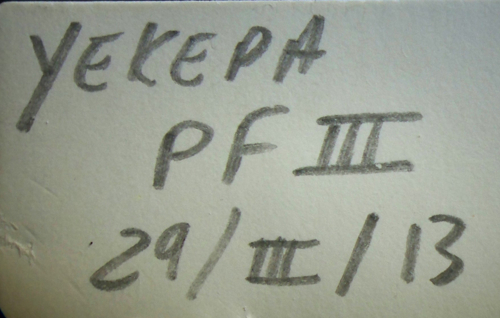 YEKEPA
PF III
29/III/13